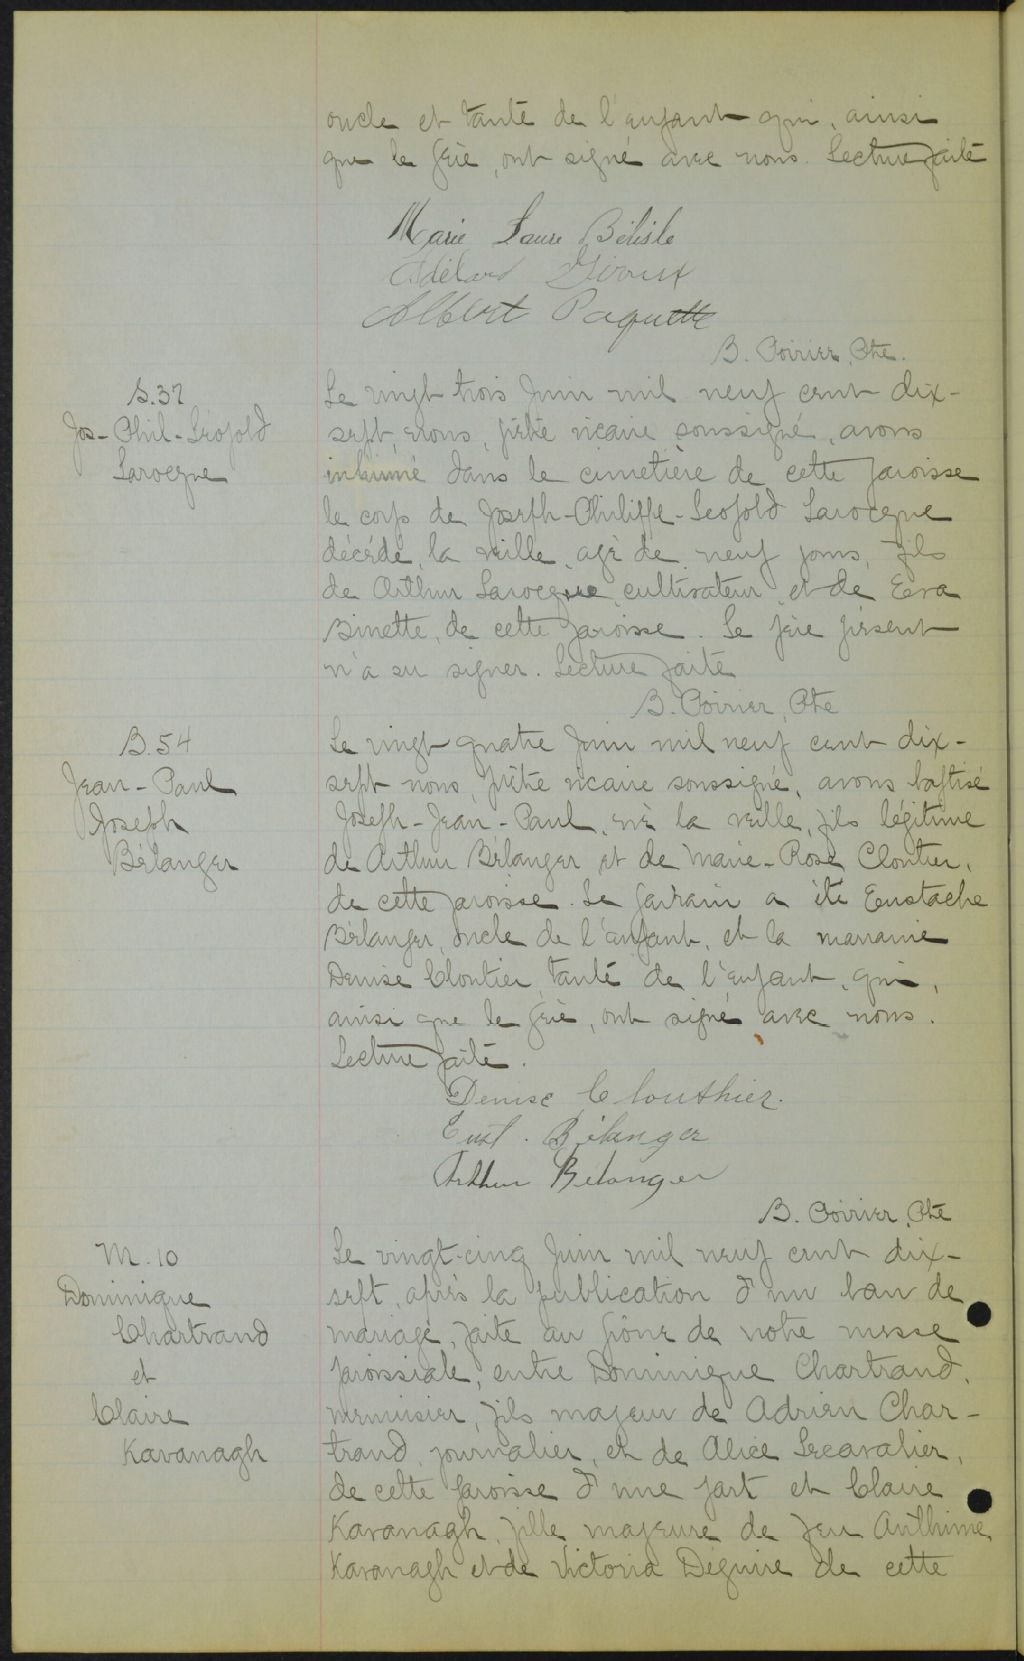 oncle et tante de l'enfant qui, ainsi
que le père, ont signé avec nous. Lecture faite
Marie Laure Bélisle
Adélard Giroux
Albert Paquette
B. Poirier, Ptre.
S.37
Jos-Phil-Léopold
Larocque
Le vingt trois Juin mil neuf cent dix-
sept, nous, prêtre vicaire soussigné, avons
inhumé dans le cimetière de cette paroisse
le corps de Joseph-Philippe-Léopold Larocque
décédé, la veille, agé de neuf jours, fils
de Arthur Larocque, cultivateur, et de Eva
Binette, de cette paroisse. Le père présent
n'a su signer. Lecture faite
B. Poirier, Ptre
B.54
Jean-Paul
Joseph
Bélanger
Le vingt-quatre Juin mil neuf cent dix-
sept nous, prêtre vicaire soussigné, avons baptisé
Joseph-Jean-Paul, né la veille, fils légitime
de Arthur Bélanger et de Marie-Rose Cloutier,
de cette paroisse. Le parrain a été Eustache
Bélanger, oncle de l'enfant, et la marraine
Denise Cloutier, tante de l'enfant, qui,
ainsi que le père, ont signé avec nous.
Lecture faite.
Denise Clouthier.
Eust. Bélanger
Arthur Bélanger
B. Poirier, Ptre
M.10
Dominique
Chartrand
et
Claire
Kavanagh
Le vingt-cinq Juin mil neuf cent dix-
sept, après la publication d'un ban de
mariage, faite au prône de notre messe
paroissiale, entre Dominique Chartrand,
menuisier, fils majeur de Adrien Char-
trand, journalier, et de Alice Lecavalier,
de cette paroisse d'une part et Claire
Kavanagh, fille majeure de feu Anthime
Kavanagh et de Victoria Deguire de cette